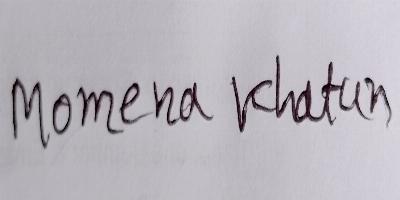 Momena Khatun